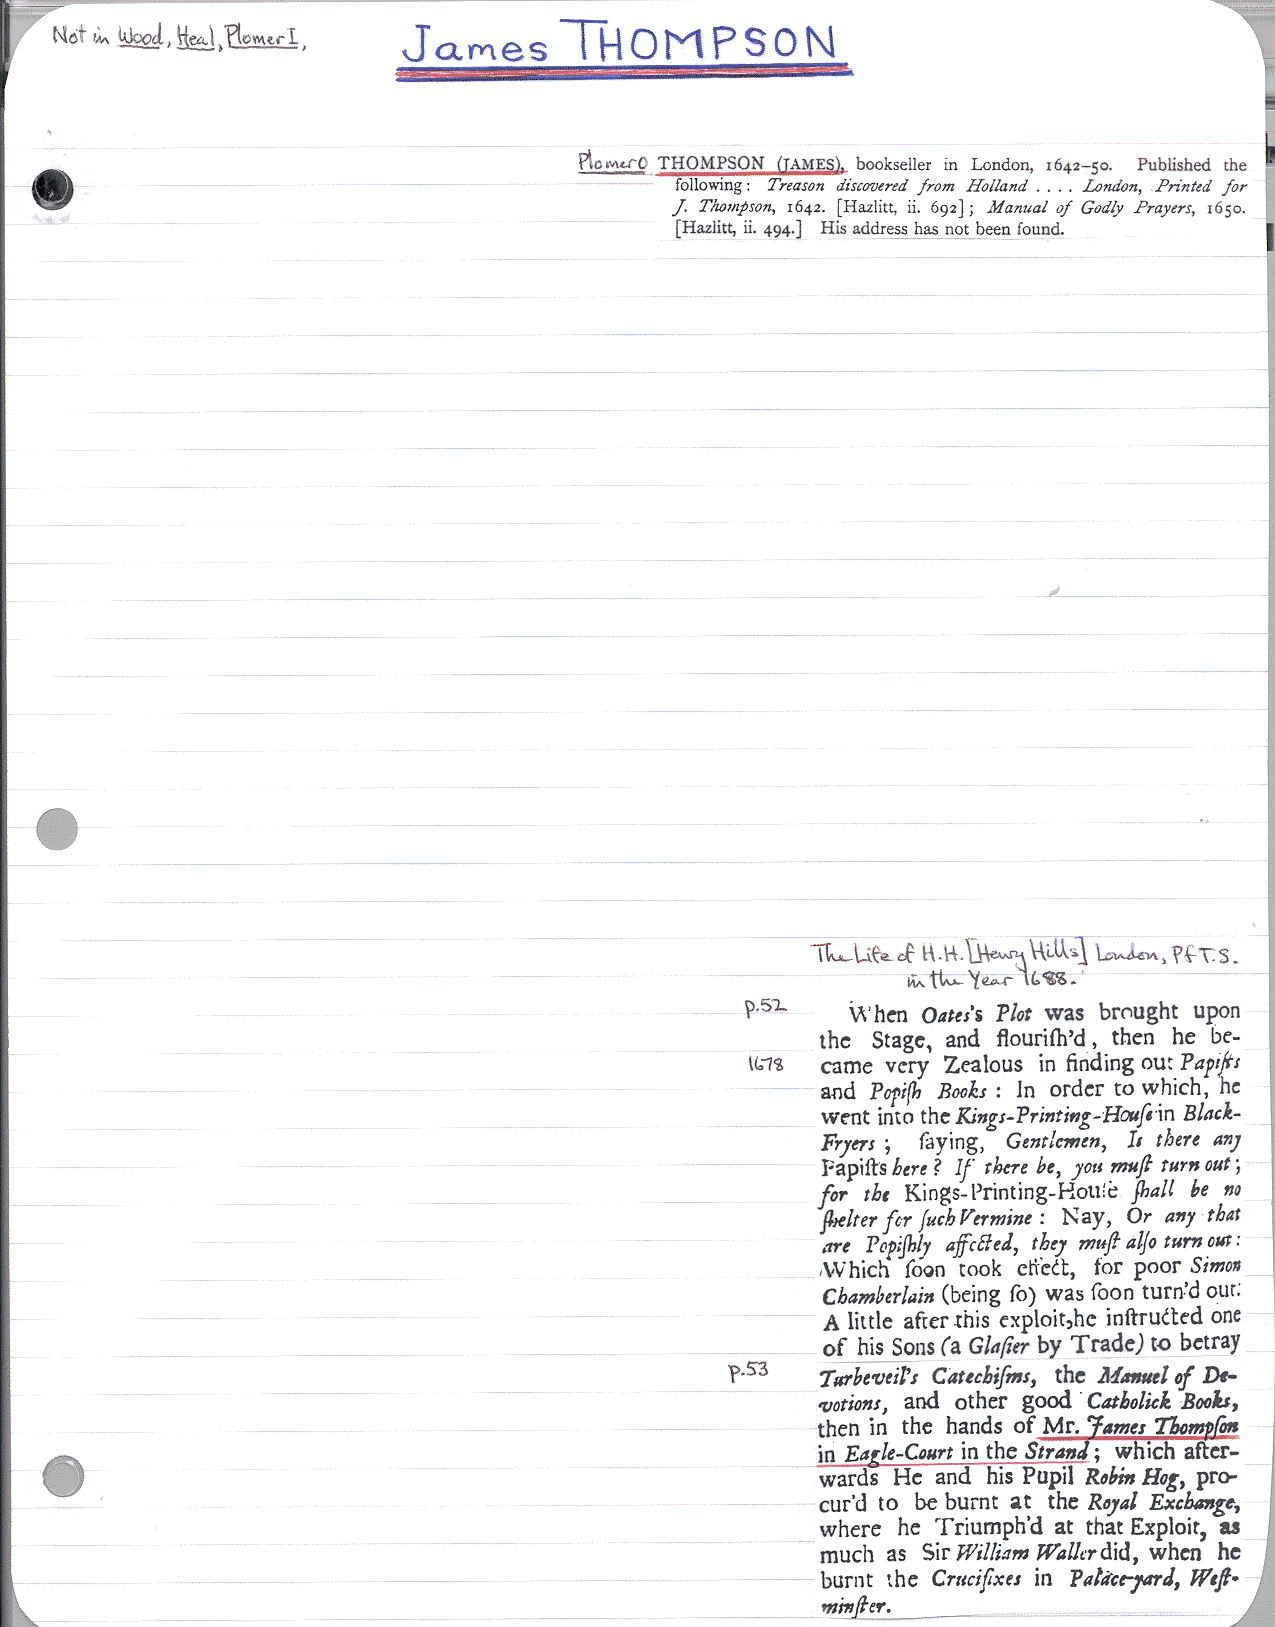 Not in Wood, Heal, Plomer I,
James THOMPSON
Plomer0 THOMPSON (JAMES), bookseller in London, 1642–50. Published the
following: Treason discovered from Holland . . . . London, Printed for
J. Thompson, 1642. [Hazlitt, ii. 692]; Manual of Godly Prayers, 1650.
[Hazlitt, ii. 494.] His address has not been found.
The Life of H.H. [Henry Hills] London, P f T.S.
in the Year 1688.
p.52 When Oates's Plot was brought upon
the Stage, and flouriſh'd, then he be-
1678 came very Zealous in finding out Papiſts
and Popiſh Books : In order to which, he
went into the Kings-Printing-Houſe in Black-
Fryers ; ſaying, Gentlemen, Is there any
Papiſts here ? If there be, you muſt turn out ;
for the Kings-Printing-Houſe ſhall be no
ſhelter for ſuch Vermine : Nay, Or any that
are Popiſhly affected, they muſt alſo turn out :
Which ſoon took effect, for poor Simon
Chamberlain (being ſo) was ſoon turn'd out.
A little after this exploit, he inſtructed one
of his Sons (a Glaſier by Trade) to betray
p.53 Turbeveil's Catechiſms, the Manuel of De-
votions, and other good Catholick Books,
then in the hands of Mr. James Thompſon
in Eagle-Court in the Strand ; which after-
wards He and his Pupil Robin Hog, pro-
cur'd to be burnt at the Royal Exchange,
where he Triumph'd at that Exploit, as
much as Sir William Waller did, when he
burnt the Crucifixes in Palace-yard, Weſt-
minſter.